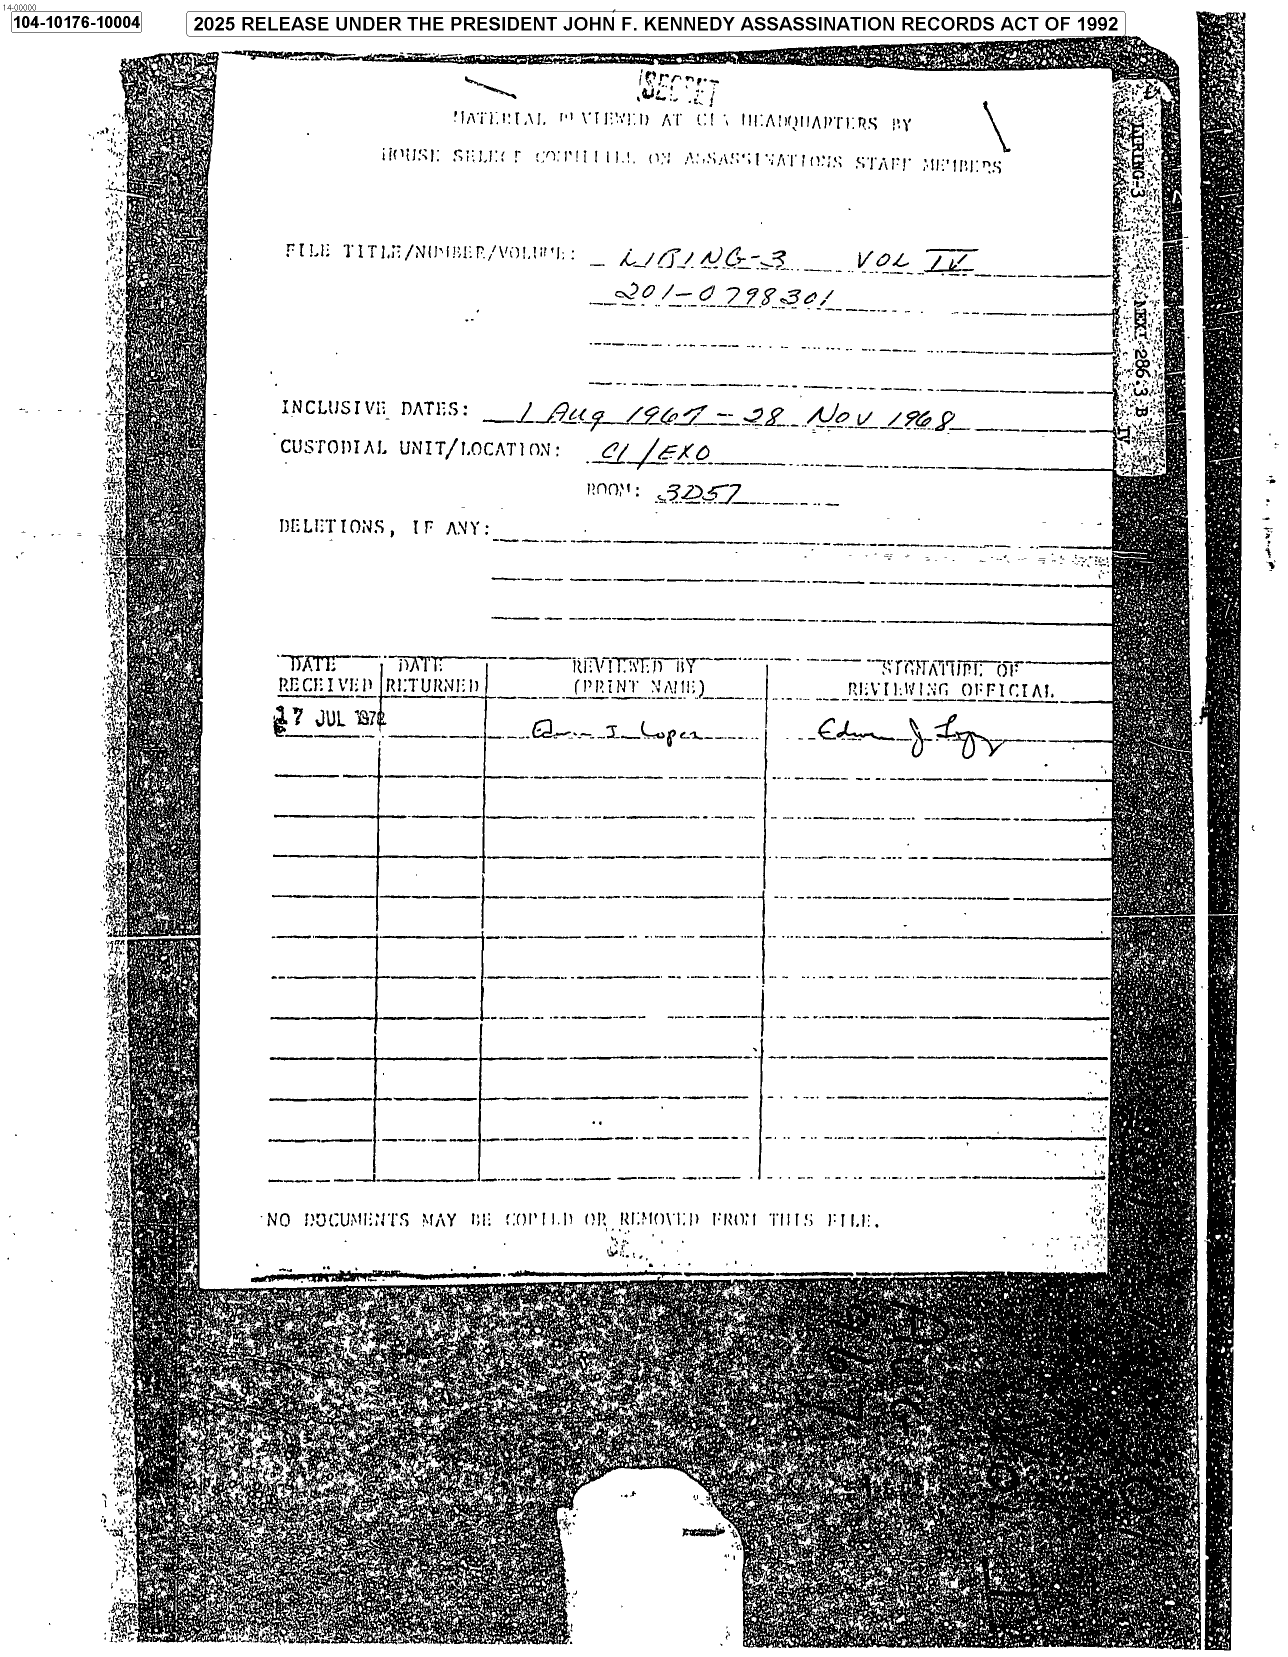 14-00000
104-10176-10004
2025 RELEASE UNDER THE PRESIDENT JOHN F. KENNEDY ASSASSINATION RECORDS ACT OF 1992
SECRET
MATERIAL REVIEWED AT CIA HEADQUARTERS BY
HOUSE SELECT COMMITTEE ON ASSASSINATIONS STAFF MEMBERS
FILE TITLE/NUMBER/VOLUME: LIRING-3 VOL IV
201-0798301
INCLUSIVE DATES: 1 Aug 1967 - 28 Nov 1968
CUSTODIAL UNIT/LOCATION: CI/EXO
ROOM: 3D57
DELETIONS, IF ANY:
DATE RECEIVED
DATE RETURNED
REVIEWED BY (PRINT NAME)
SIGNATURE OF REVIEWING OFFICIAL
17 JUL 1978 Edwin J. Lopez Edwin J Lopez
NO DOCUMENTS MAY BE COPIED OR REMOVED FROM THIS FILE.
LIRING-3
NEXT 286
IV